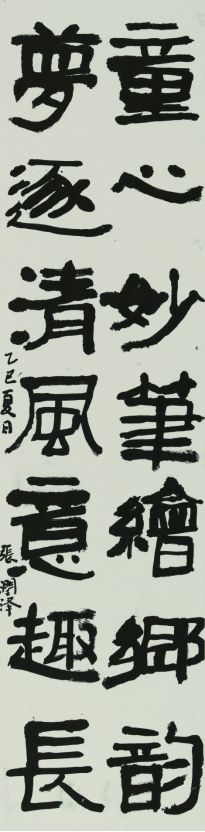 童心妙筆繪鄉韵
夢逐清風意趣長
乙巳夏月
張潤泽